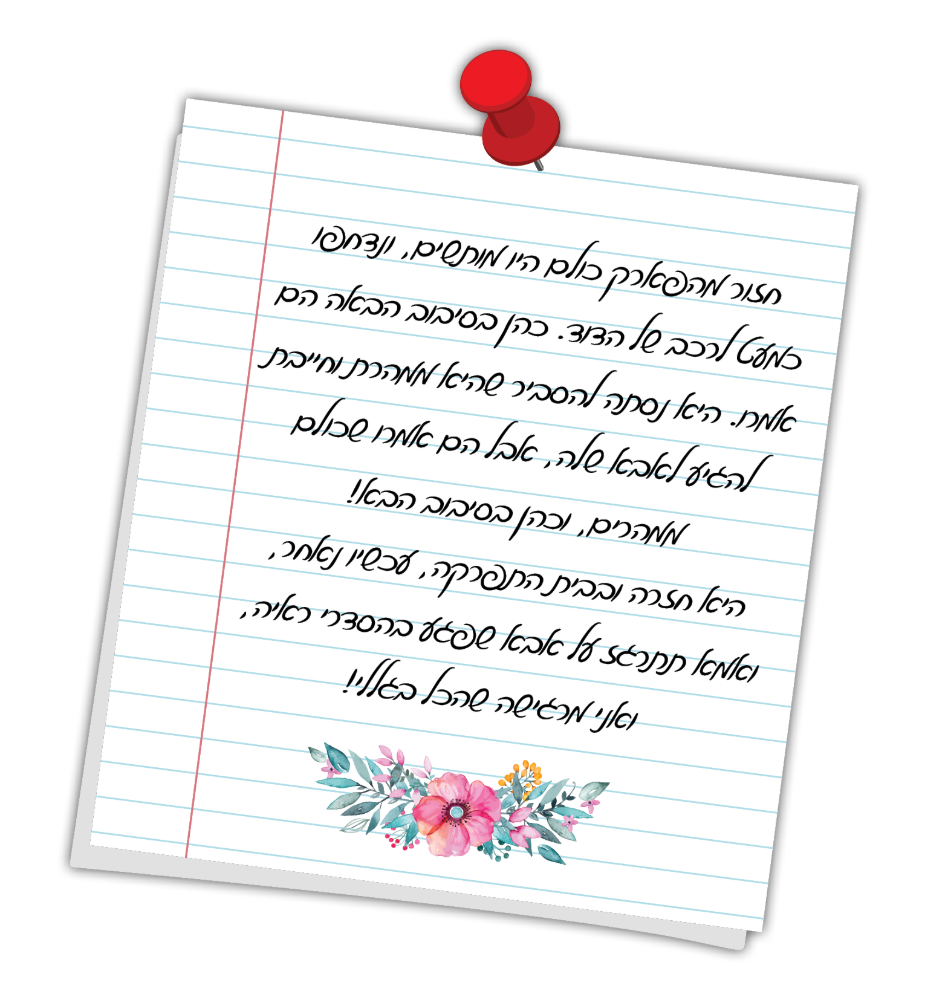 חזור מהפארק כולם היו מותשים, ונדחפו
כמעט לרכב של הדוד. כהן בסיבוב הבאה הם
אמח. היא נסתה להסביר שהיא ממהרת וחייבת
להגיע לאבא שלה, אבל הם אמרו שכולם
ממהרים, וכהן בסיבוב הבא!
היא חזרה ובבית התפרקה, עכשיו נאחר,
ואמא תתרגז על אבא שפגע בהסדרי ראיה,
ואני מרגישה שהכל בגללי!